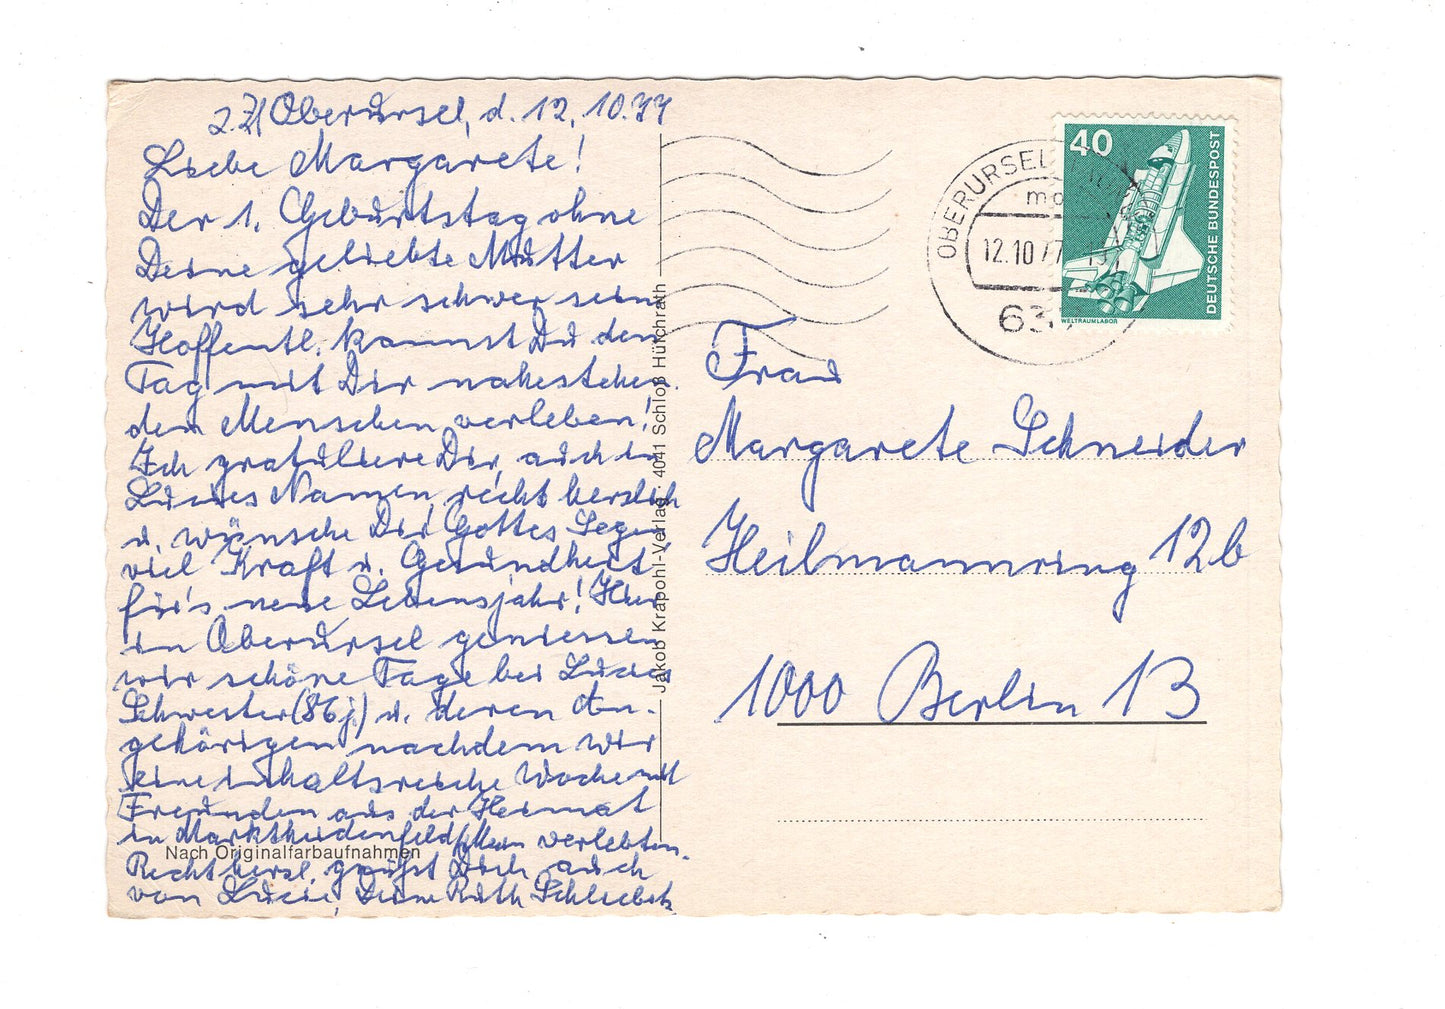 z. Zt. Oberursel, d. 12.10.77
Liebe Margarete!
Der 1. Geburtstag ohne
Deine geliebte Mutter
wird sehr schwer sein
Hoffentl. kannst Du den
Tag mit Dir nahestehen
den Menschen verleben!
Ich gratuliere Dir, auch in
Lucies Namen, recht herzlich
u. wünsche Dir Gottes Segen,
viel Kraft u. Gesundheit
für's neue Lebensjahr! Hier
in Oberursel geniessen
wir schöne Tage bei Lucies
Schwester (86 j.) u. deren An-
gehörigen nachdem wir
eine inhaltsreiche Woche mit
Freunden aus der Heimat
in Marktheidenfeld/Main verlebten.
Recht herzl. grüßt Dich auch
von Lucie, Deine Ruth
Nach Originalfarbaufnahmen
Jakob Krapohl-Verlag · 4041 Schloß Hülchrath
OBERURSEL
12.10.77
40
DEUTSCHE BUNDESPOST
WELTRAUMLABOR
Frau
Margarete Schneider
Heilmannring 12b
1000 Berlin 13